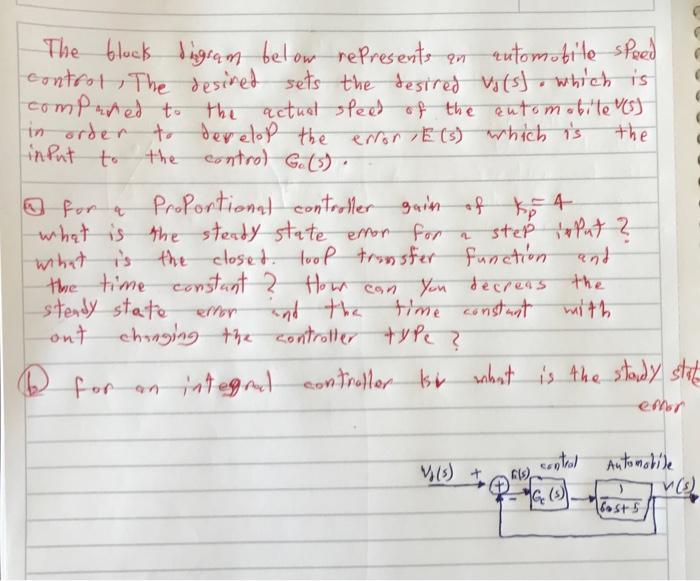 The block digram below represents an automobile speed
control, The desired sets the desired Vd(s). which is
compared to the actual speed of the automobile V(s)
in order to develop the error, E(s) which is the
input to the control Gc(s).
a) for a Proportional controller gain of kp = 4
what is the steady state error for a step input?
what is the closed. loop transfer function and
the time constant? How can you decreas the
steady state error and the time constant with
out changing the controller type?
b) for an integral controller what is the stady stat
error
control Automobile
Vd(s) + E(s) V(s)
+ - Gc(s) 1
60s+5